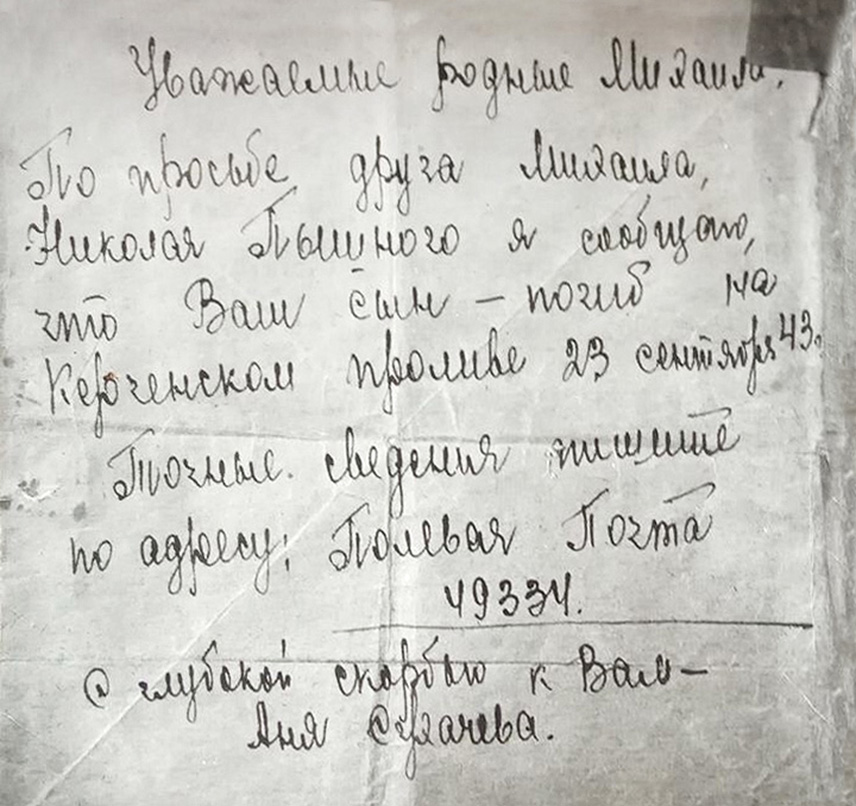 Уважаемые родные Михаила.
По просьбе друга Михаила,
Николая Пышного я сообщаю,
что Ваш сын – погиб на
Керченском проливе 23 сентября 43.
Точные сведения пишите
по адресу: Полевая Почта
49334.
С глубокой скорбью к Вам –
Аня